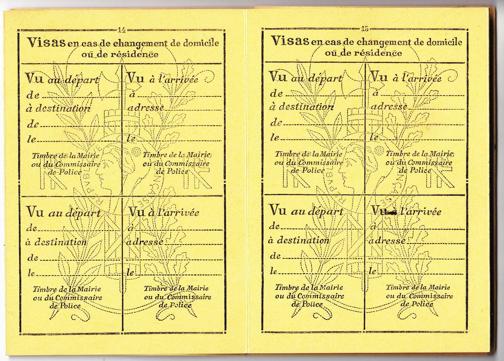 14
Visas en cas de changement de domicile
ou de résidence
Vu au départ
de
à destination
de
le
Timbre de la Mairie
ou du Commissaire
de Police
Vu à l'arrivée
à
adresse
le
Timbre de la Mairie
ou du Commissaire
de Police
Vu au départ
de
à destination
de
le
Timbre de la Mairie
ou du Commissaire
de Police
Vu à l'arrivée
à
adresse
le
Timbre de la Mairie
ou du Commissaire
de Police
15
Visas en cas de changement de domicile
ou de résidence
Vu au départ
de
à destination
de
le
Timbre de la Mairie
ou du Commissaire
de Police
Vu à l'arrivée
à
adresse
le
Timbre de la Mairie
ou du Commissaire
de Police
Vu au départ
de
à destination
de
le
Timbre de la Mairie
ou du Commissaire
de Police
Vu à l'arrivée
à
adresse
le
Timbre de la Mairie
ou du Commissaire
de Police